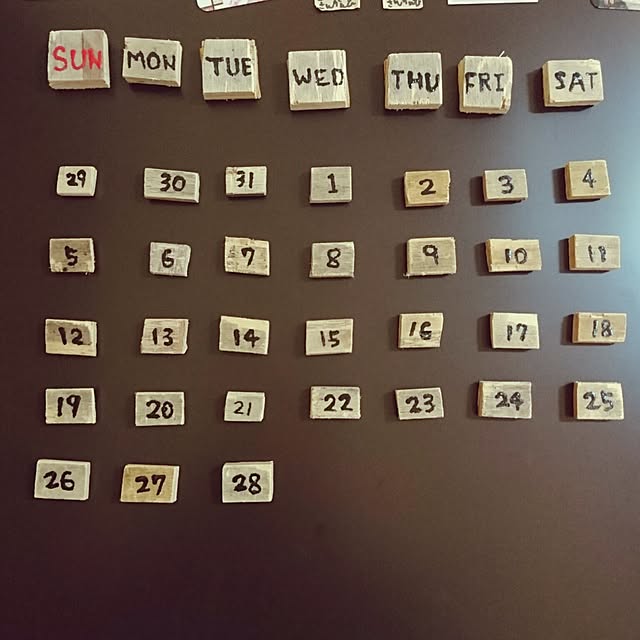 SUN MON TUE WED THU FRI SAT
29 30 31 1 2 3 4
5 6 7 8 9 10 11
12 13 14 15 16 17 18
19 20 21 22 23 24 25
26 27 28